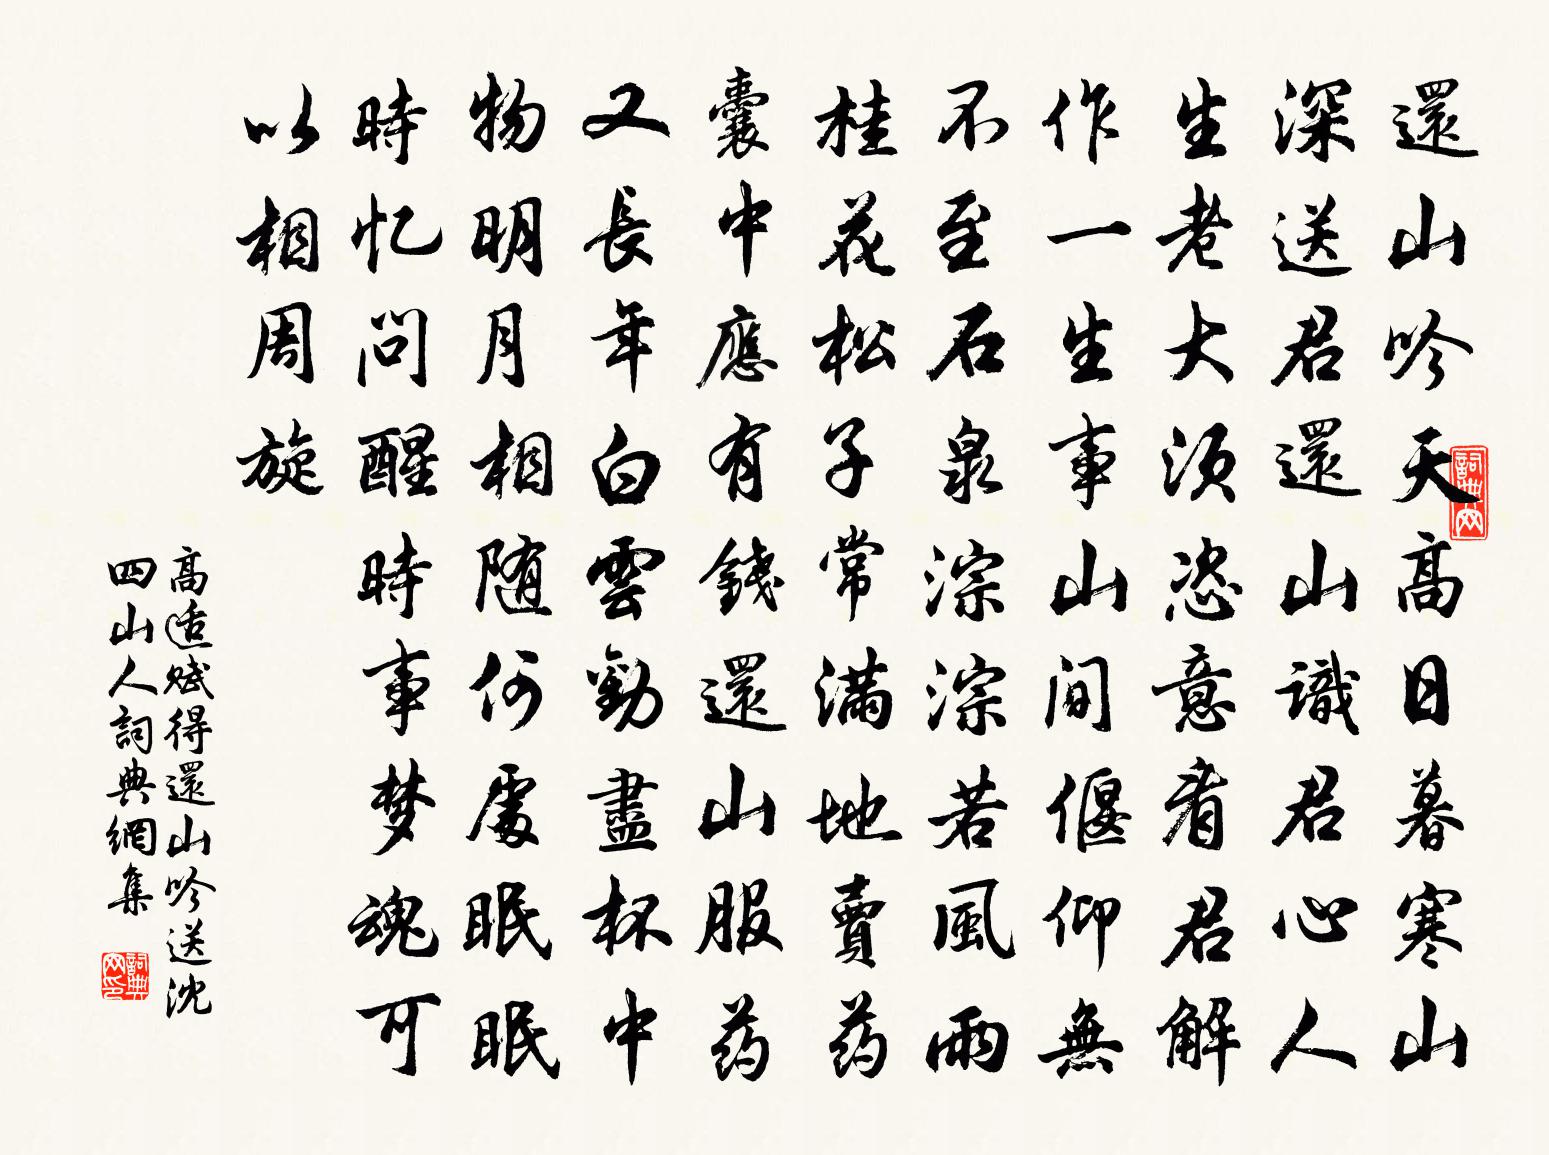 還山吟天高日暮寒山
深送君還山識君心人
生老大須恣意看君解
作一生事山間偃仰無
不至石泉淙淙若風雨
桂花松子常滿地賣药
囊中應有錢還山服药
又長年白雲勸盡杯中
物明月相随何處眠眠
時忆問醒時事梦魂可
以相周旋
高适赋得還山吟送沈
四山人詞典網集
詞典网
詞典网印